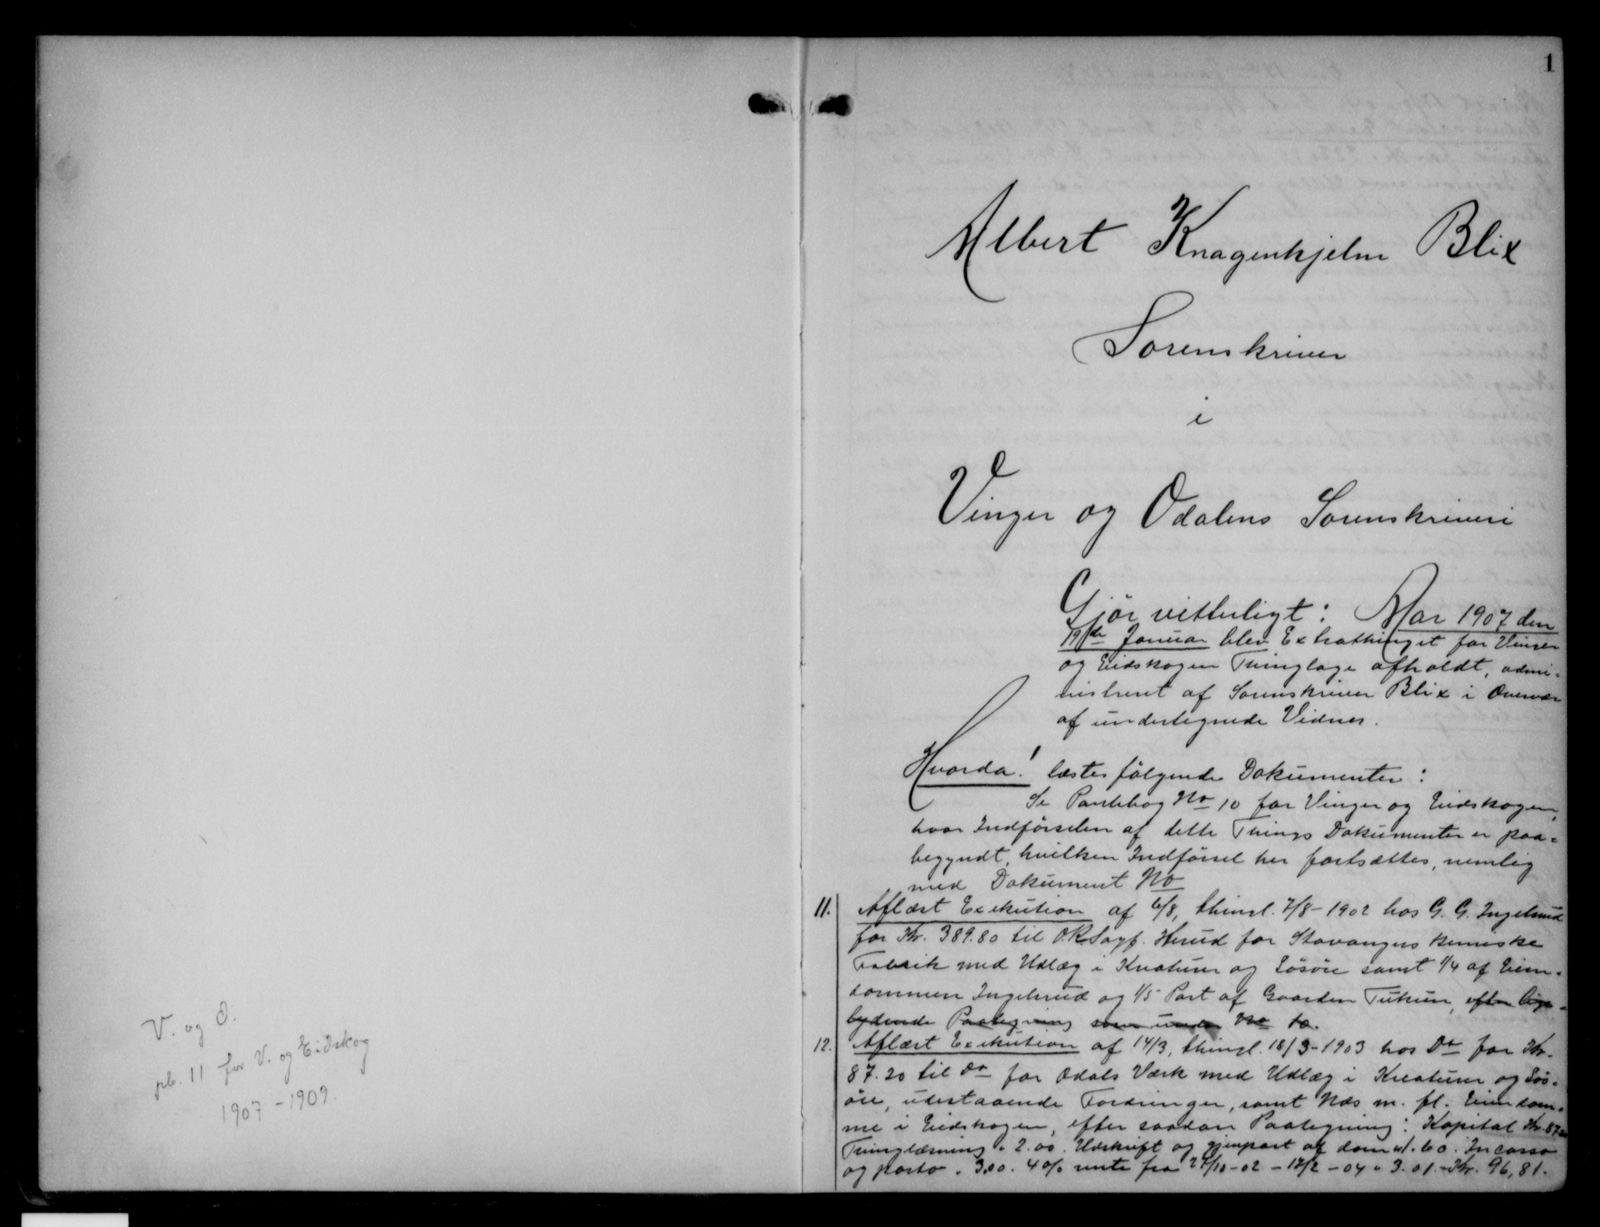 V. og O.
pb. 11 for V. og Eidskog
1907 - 1909.
1
Albert Knagenhjelm Blix
Sorenskriver
i
Vinger og Odalens Sorenskriveri
Gjör vitterligt: Aar 1907 den
19de Januar blev Extrathinget for Vinger
og Eidskogen Thinglage afholdt, admi-
nistreret af Sorenskriver Blix i Overvær
af undertegnede Vidner.
Hvorda! læstes følgende Dokumenter:
Se Pantebog No 10 for Vinger og Eidskogen,
hvor Indförselen af dette Things Dokumenter er paa-
begyndt, hvilken Indförsel her fortsættes, nemlig
med Dokument No
11. Aflæst Exekution af 6/8, thingl. 7/8-1902 hos G. G. Ingelsrud
for Kr. 389.80 til O.R.Sagf. Herud for Stavangers kemiske
Fabrik med Udlæg i Kreaturer og Lösöre samt 1/4 af Eien-
dommen Ingelsrud og 1/5 Part af Gaarden Tukun, efter lige-
lydende Paategning som under No 10.
12. Aflæst Exekution af 14/3, thingl. 18/3-1903 hos Do for Kr.
87.20 til Do for Odals Værk med Udlæg i Kreaturer og Lös-
öre, udestaaende Fordringer, samt Næs m. fl. Eiendom-
me i Eidskogen, efter saadan Paategning: Kapital Kr. 87.20
Thinglæsning " 2.00. Udskrift og gjenpart af dom 1.60. Incasso
og porto " 3.00. 4 o/o rente fra 27/10-02 - 12/2-04 " 3.01. - Kr. 96,81.